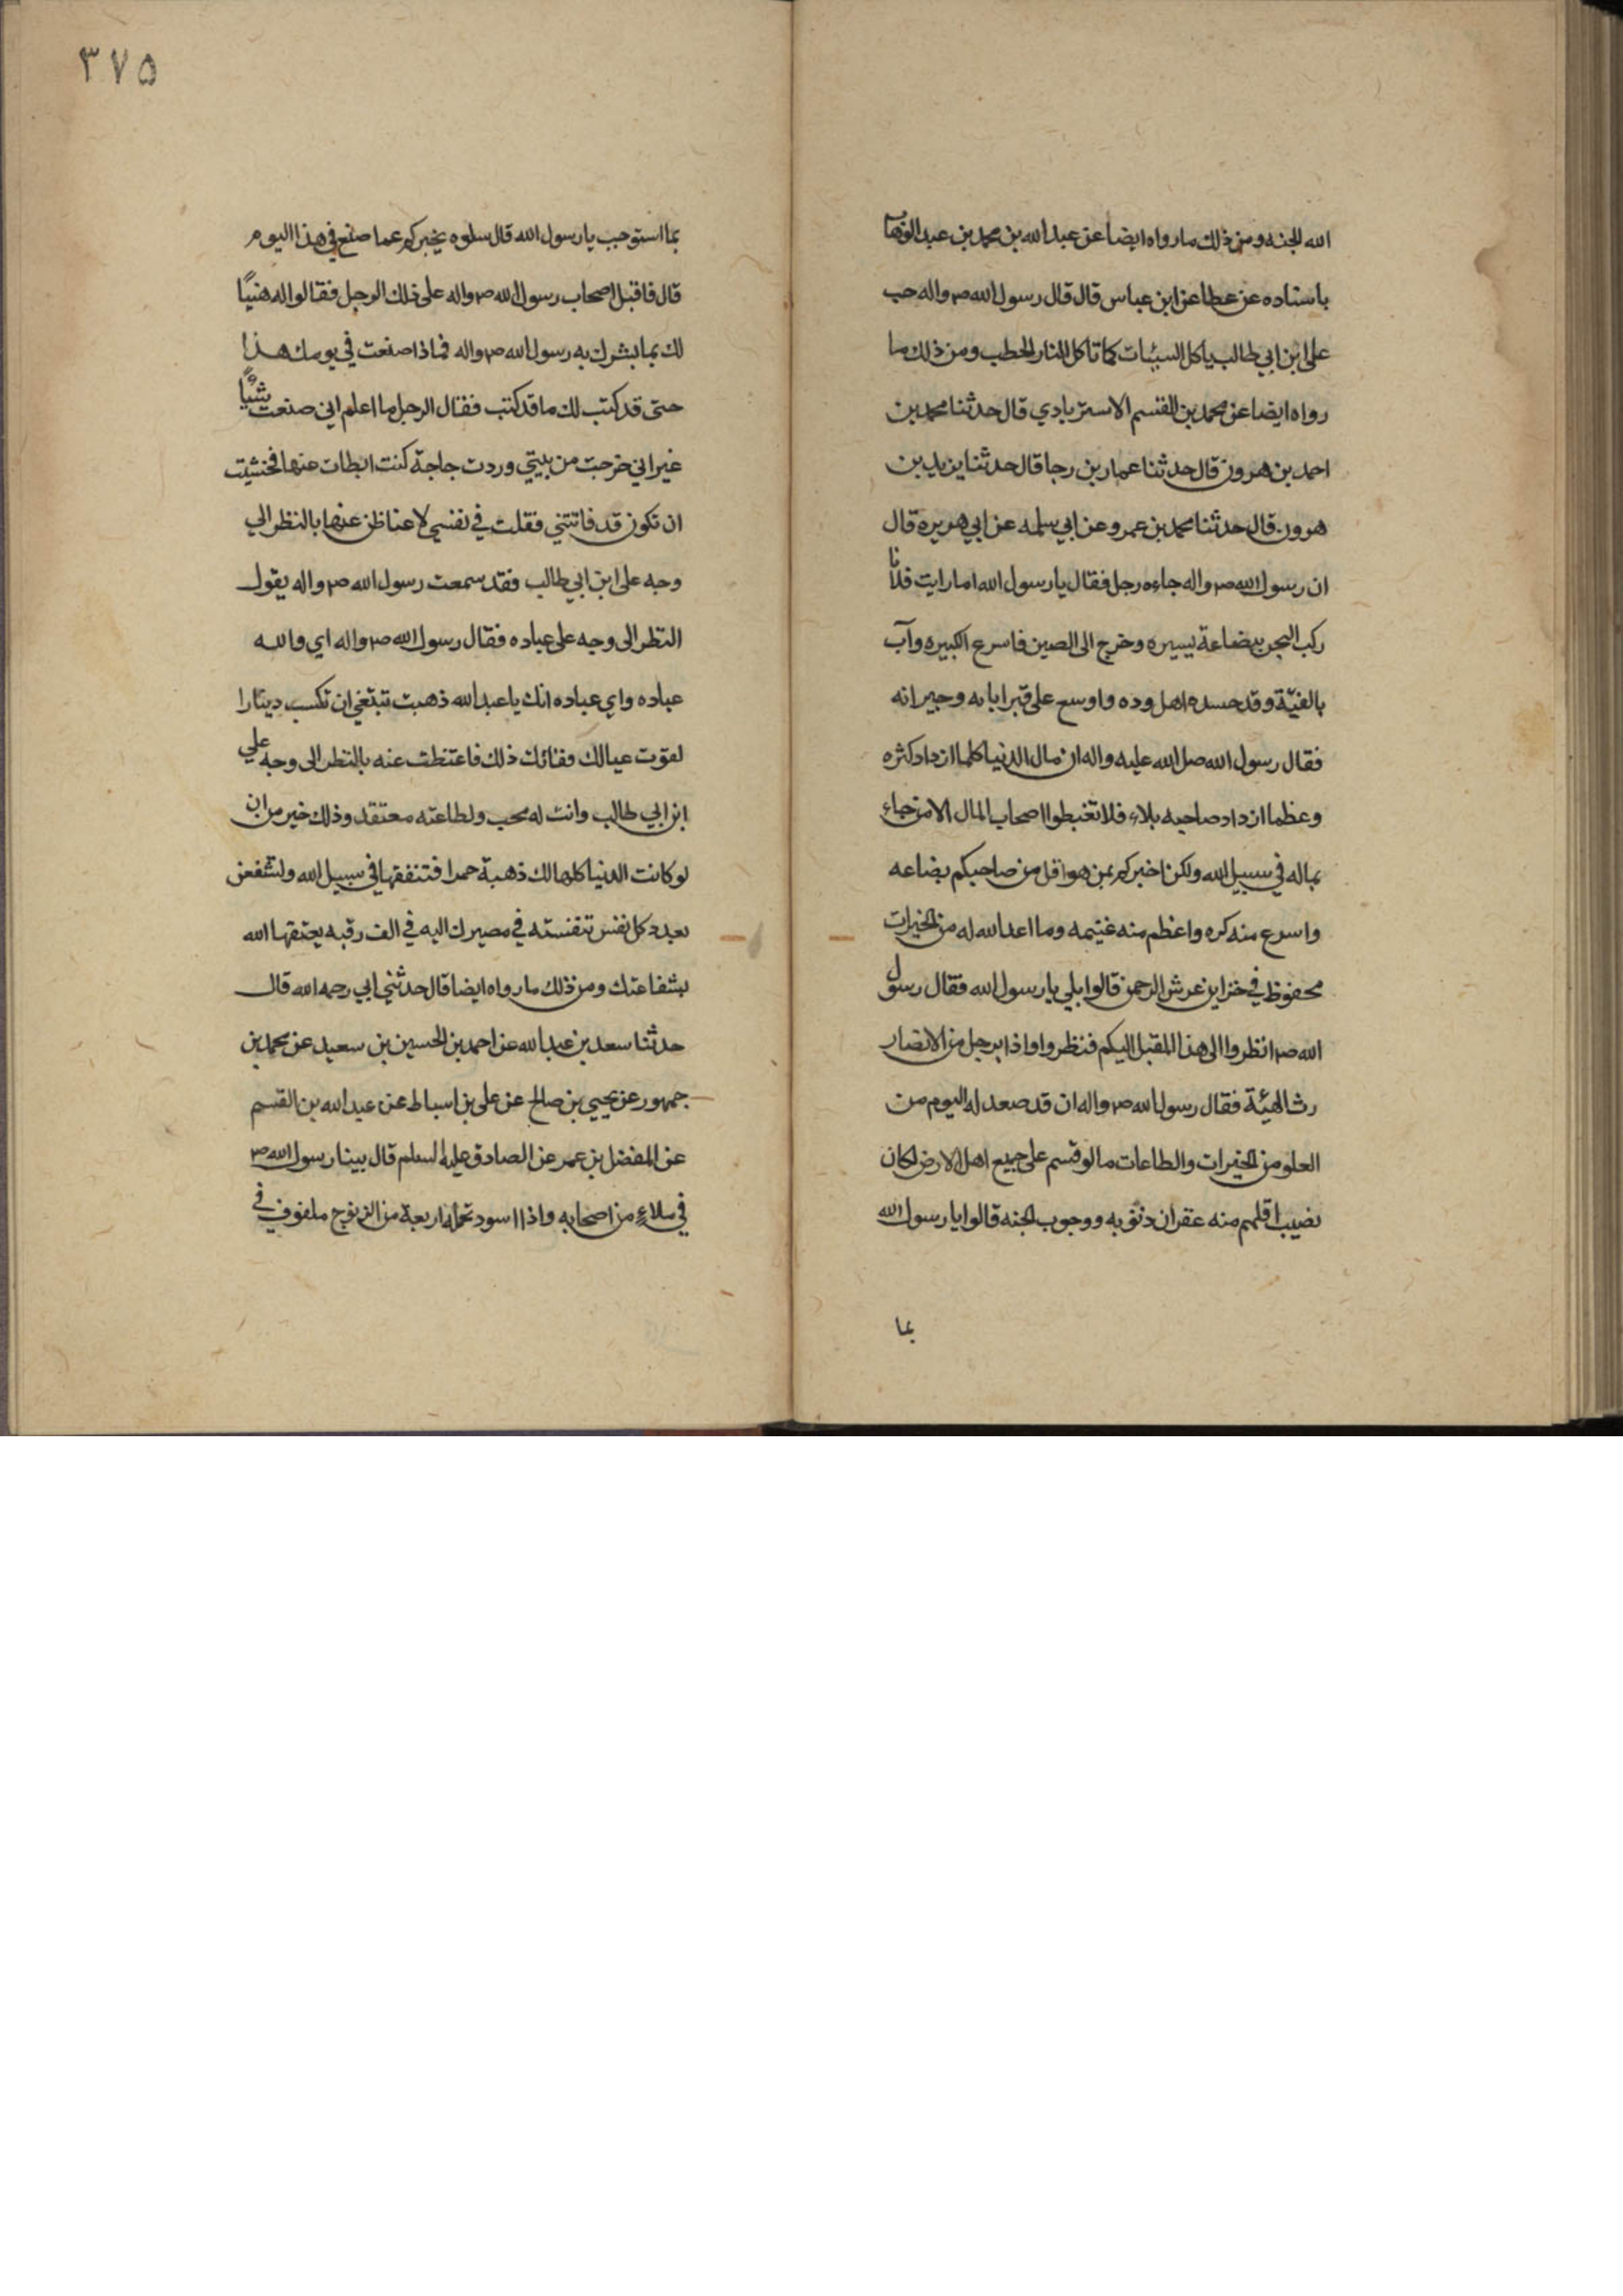 الله الجنه ومن ذلك ما رواه ايضا عن عبد الله بن محمد بن عبد الوهاب
باسناده عن عطا عن ابن عباس قال قال رسول الله ص واله حب
على ابن ابي طالب ياكل السيئات كما تاكل النار الحطب ومن ذلك ما
رواه ايضا عن محمد بن القسم الاسترباد‌ي قال حدثنا محمد بن
احمد بن هرون قال حدثنا عمار بن رجا قال حدثنا يزيد بن
هرون قال حدثنا محمد بن عمرو عن ابي سلمه عن ابي هريره قال
ان رسول الله ص واله جاءه رجل فقال يا رسول الله اما رايت فلانا
ركب البحر ببضاعة يسيره وخرج الى الصين فاسرع الكبيره وآب
بالغنيّة وقد حسده اهل وده واوسع على قبراباته وجيرانه
فقال رسول الله صل الله عليه واله ان مال الدنيا كلما ازداد كثره
وعظما ازداد صاحبه بلاء فلا تغبطوا اصحاب المال الا من جاء
بماله في سبيل الله ولكن اخبركم بمن هو اقل من صاحبكم بضاعه
واسرع منه كره واعظم منه غنيمه وما اعد الله له من الخيرات
محفوظ في خزاين عرش الرحمن قالوا بلي يا رسول الله فقال رسول
الله ص انظروا الى هذا المقبل اليكم فنظروا واذا برجل من الانصار
رث الهيئة فقال رسول الله ص واله ان قد صعد له اليوم من
العلو من الخيرات والطاعات ما لو قسم على جميع اهل الارض لكان
نصيب اقلهم منه غفران ذنوبه ووجوب الجنه قالوا يا رسول الله
بما
٣٧٥
بما استوجب يا رسول الله قال سلوه يخبركم عما صنع في هذا اليوم
قال فاقبل اصحاب رسول الله ص واله على ذلك الرجل فقالوا له هنيًا
لك بما بشرك به رسول الله ص واله فماذا صنعت في يومك هذا
حتى قد كتب لك ما قد كتب فقال الرجل ما اعلم اني صنعت شيًا
غير اني خرجت من بيتي وردت حاجة كنت ابطات عنها فخشيت
ان تكون قد فاتتني فقلت في نفسي لاعتاظن عنها بالنظر الي
وجه على ابن ابي طالب فقد سمعت رسول الله ص واله يقول
النظر الى وجه على عباده فقال رسول الله ص واله اي والله
عباده واي عباده انك يا عبد الله ذهبت تبتغي ان تكسب دينارا
لقوت عيالك ففاتك ذلك فاعتظت عنه بالنظر الى وجه علي
ابن ابي طالب وانت له محب ولطاعته معتقد وذلك خير من ان
لو كانت الدنيا كلها لك ذهبة حمرا فتنفقها في سبيل الله ولتشفعن
بعدد كل نفس تنفسته في مصيرك اليه في الف رقبه يعتقها الله
بشفاعتك ومن ذلك ما رواه ايضا قال حدثني ابي رحمه الله قال
حدثنا سعد بن عبد الله عن احمد بن الحسين بن سعيد عن محمد بن
جمهور عن يحيي بن صالح عن على بن اسباط عن عبد الله بن القسم
عن المفضل بن عمر عن الصادق عليه السلم قال بينا رسول الله ص
في ملاءٍ من اصحابه واذا اسود تحمله اربعة من الزنوج ملفوف في